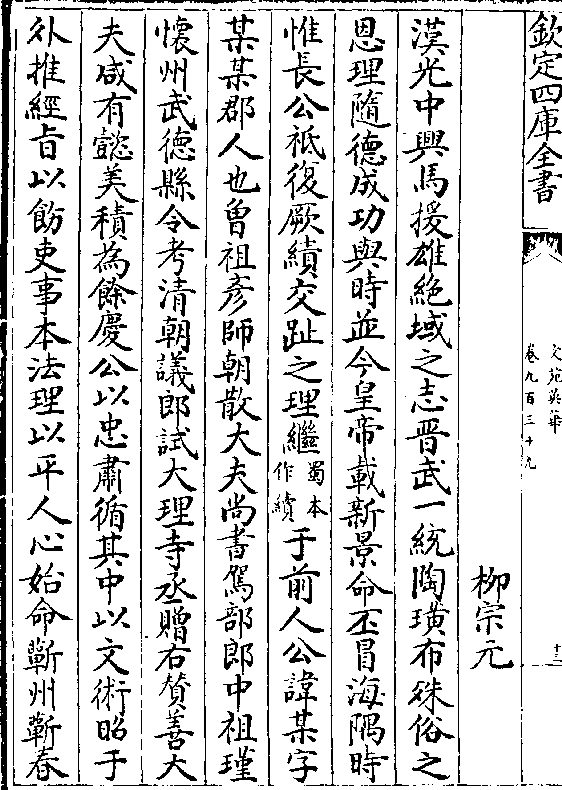 欽定四庫全書
文苑英華
卷九百三十九
十三
柳宗元
漢光中興馬援雄絶域之志晉武一統陶璜布殊俗之
恩理隨德成功與時並今皇帝載新景命丕冒海隅時
惟長公祗復厥績交趾之理繼蜀本作續于前人公諱某字
某某郡人也曾祖彦師朝散大夫尚書駕部郎中祖瑾
懷州武德縣令考清朝議郎試大理寺丞贈右贊善大
夫咸有懿美積為餘慶公以忠肅循其中以文術昭于
外推經旨以飭吏事本法理以平人心始命蘄州蘄春